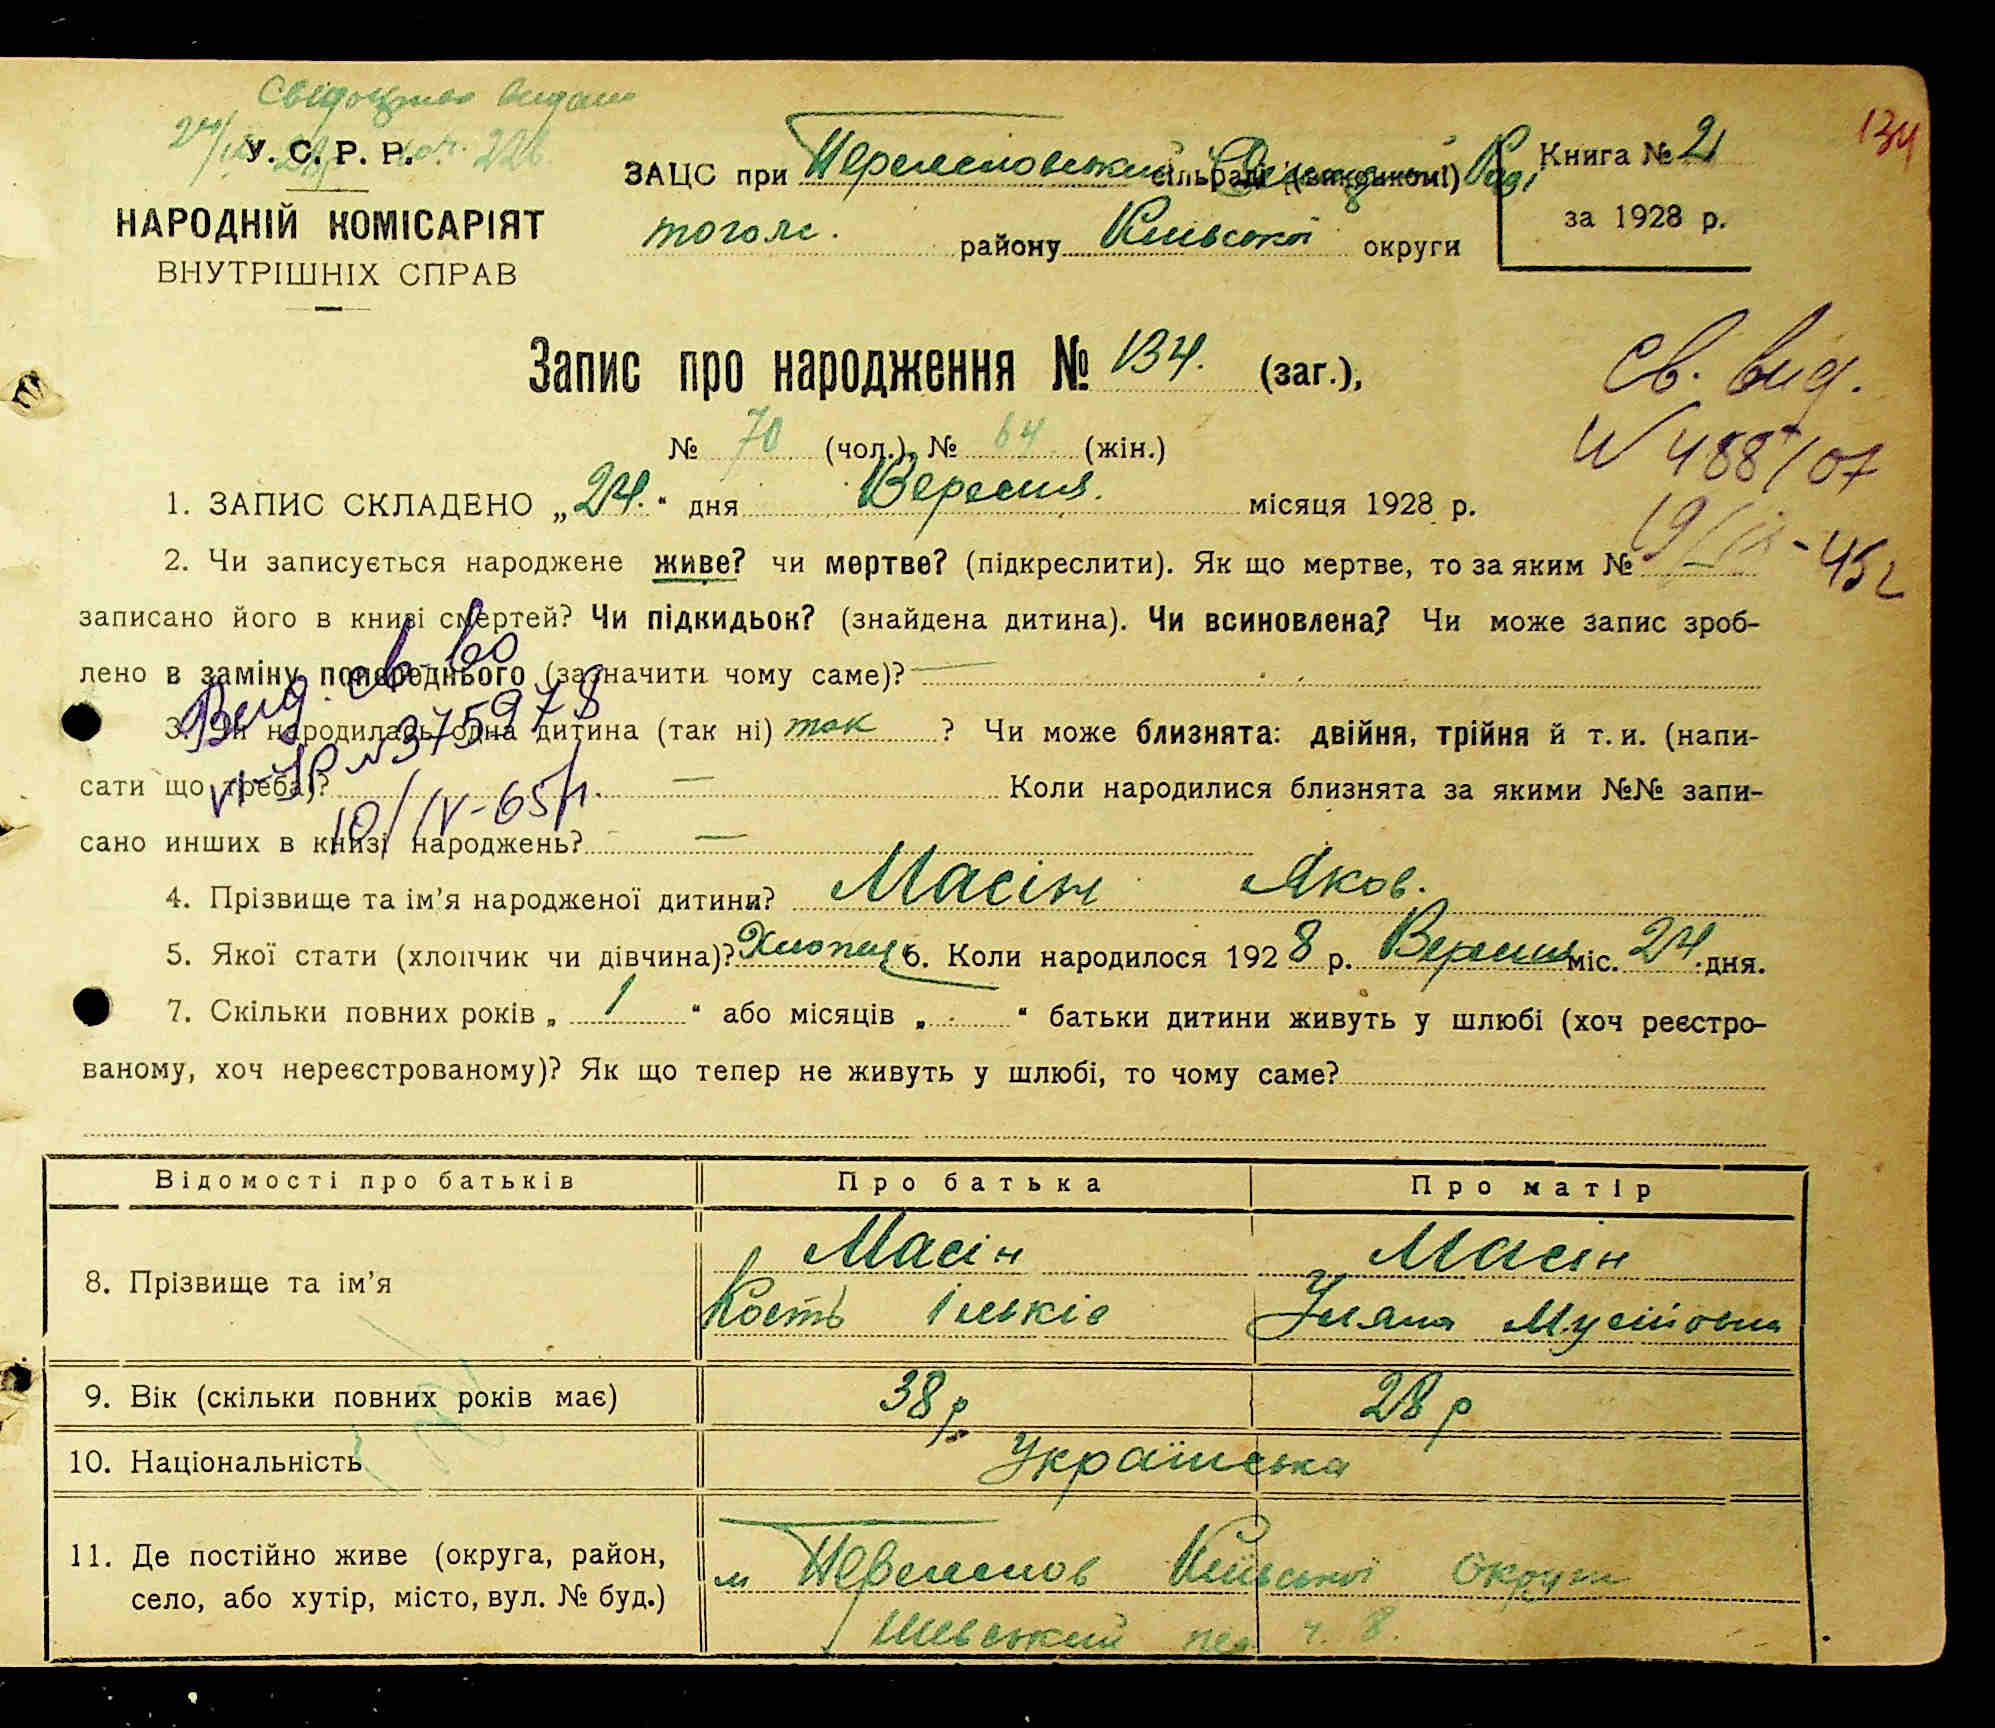 Свідоцтво видано
У. С. Р. Р.
НАРОДНІЙ КОМІСАРІЯТ
ВНУТРІШНІХ СПРАВ
ЗАЦС при сільраді (виконкомі) Раді
району Київської округи
Книга № 21
за 1928 р.
134
Запис про народження № 134. (заг.),
№ 70 (чол.), № 64 (жін.)
Св. вид.
N 488/07
19/ІХ-45 г
1. ЗАПИС СКЛАДЕНО „24." дня Вересня. місяця 1928 р.
2. Чи записується народжене живе? чи мертве? (підкреслити). Як що мертве, то за яким №
записано його в книзі смертей? Чи підкидьок? (знайдена дитина). Чи всиновлена? Чи може запис зроб-
лено в заміну попереднього (зазначити чому саме)? —
Выд. св-во
N 375978
10/IV-65 г.
3. Чи народилась одна дитина (так ні) так ? Чи може близнята: двійня, трійня й т. и. (напи-
сати що треба)? — Коли народилися близнята за якими №№ запи-
сано инших в книзі народжень? —
4. Прізвище та ім'я народженої дитини? Масін Яков.
5. Якої стати (хлопчик чи дівчина)? Хлопець 6. Коли народилося 1928 р. Вересня міс. 24. дня.
7. Скільки повних років „ 1 " або місяців „ - " батьки дитини живуть у шлюбі (хоч реєстро-
ваному, хоч нереєстрованому)? Як що тепер не живуть у шлюбі, то чому саме?
Відомості про батьків Про батька Про матір
8. Прізвище та ім'я Масін Масін
Кость Ільків Уляна Мусіївна
9. Вік (скільки повних років має) 38 р. 28 р
10. Національність Українська
11. Де постійно живе (округа, район, м Київської округи
село, або хутір, місто, вул. № буд.) ч. 8.